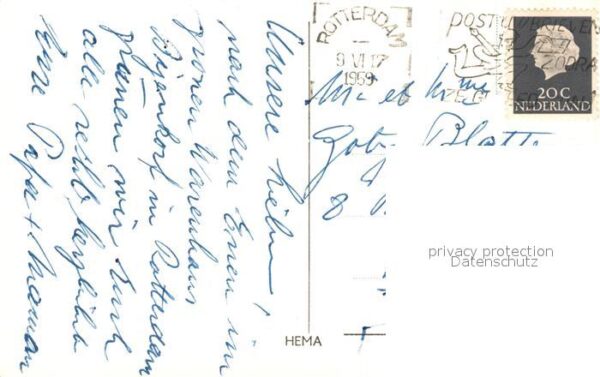 Unsere Lieben!
nach dem Essen im
grossen Warenhaus
Bijenkorf in Rotterdam
grüssen wir Euch
alle recht herzlich
Eure Papa + Maman
ROTTERDAM
9 VI 17
1969
POST UW BRIEVEN
20 C
NEDERLAND
Mr et Mme
Blatt
8
privacy protection
Datenschutz
HEMA